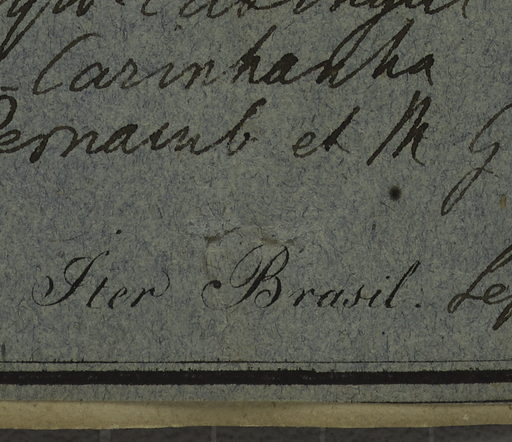 Carinhanha
Pernamb et M G
Iter Brasil.